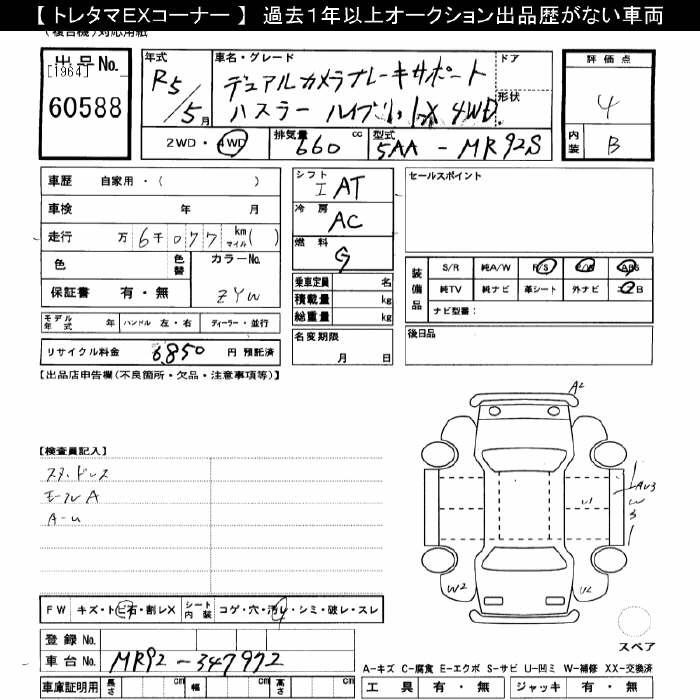 【 トレタマEXコーナー 】 過去1年以上オークション出品歴がない車両
(複合機)対応用紙
出品No.
[1964]
60588
年式
R5/5月
車名・グレード
ドア
デュアルカメラブレーキサポート
形状
ハスラー ハイブリッドX 4WD
2WD・4WD
排気量 660 cc
型式 5AA-MR92S
評価点
4
内装 B
車歴 自家用・( )
車検 年 月
走行 万 6千 0 7 7 km マイル ( )
色
色替
カラーNo.
ZYW
保証書 有・無
モデル年式 年 ハンドル 左・右 ディーラー・並行
リサイクル料金 6,850 円 預託済
シフト
I AT
冷房
AC
燃料
G
乗車定員 名
積載量 kg
総重量 kg
名変期限
月 日
セールスポイント
装備品
S/R 純A/W P/S P/W ABS
純TV 純ナビ 革シート 外ナビ エアB
ナビ型番:
後日品
【出品店申告欄(不良箇所・欠品・注意事項等)】
【検査員記入】
スタッドレス
モールA
A-U
A2
U1
AU3
W3
W2
U2
FW キズ・トビ石・割レX シート内装 コゲ・穴・汚レ・シミ・破レ・スレ
登録 No.
車台 No. MR92-347972
車庫証明用 長さ cm 幅 cm 高さ cm
スペア
A-キズ C-腐食 E-エクボ S-サビ U-凹ミ W-補修 XX-交換済
工具 有・無 ジャッキ 有・無